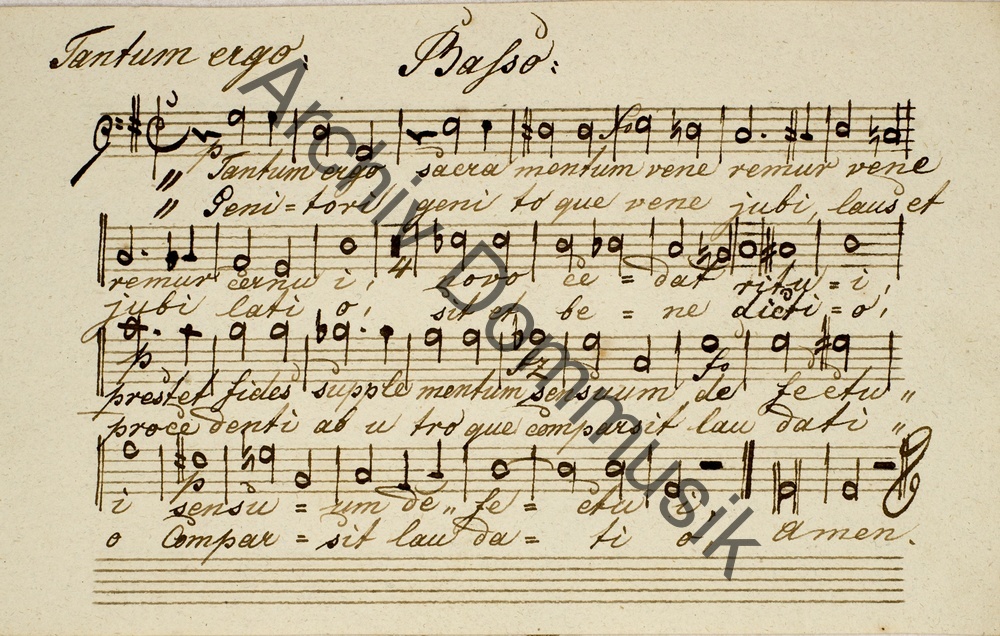 Tantum ergo: Basso:
p
„ Tantum ergo sacra mentum vene remur vene
„ Geni = tori geni to que vene jubi, laus et
4
remur cernu i, novo ce = dat ritu = i,
jubi lati o, sit et be = ne dicti = o,
p fz fo
prestet fides supple mentum sensuum de fectu „
proce denti ab u tro que comparsit lau dati „
p
i sensu = um de „ fe = ctu i,
o Compar = sit lau da = ti o amen.
Archiv Dommusik